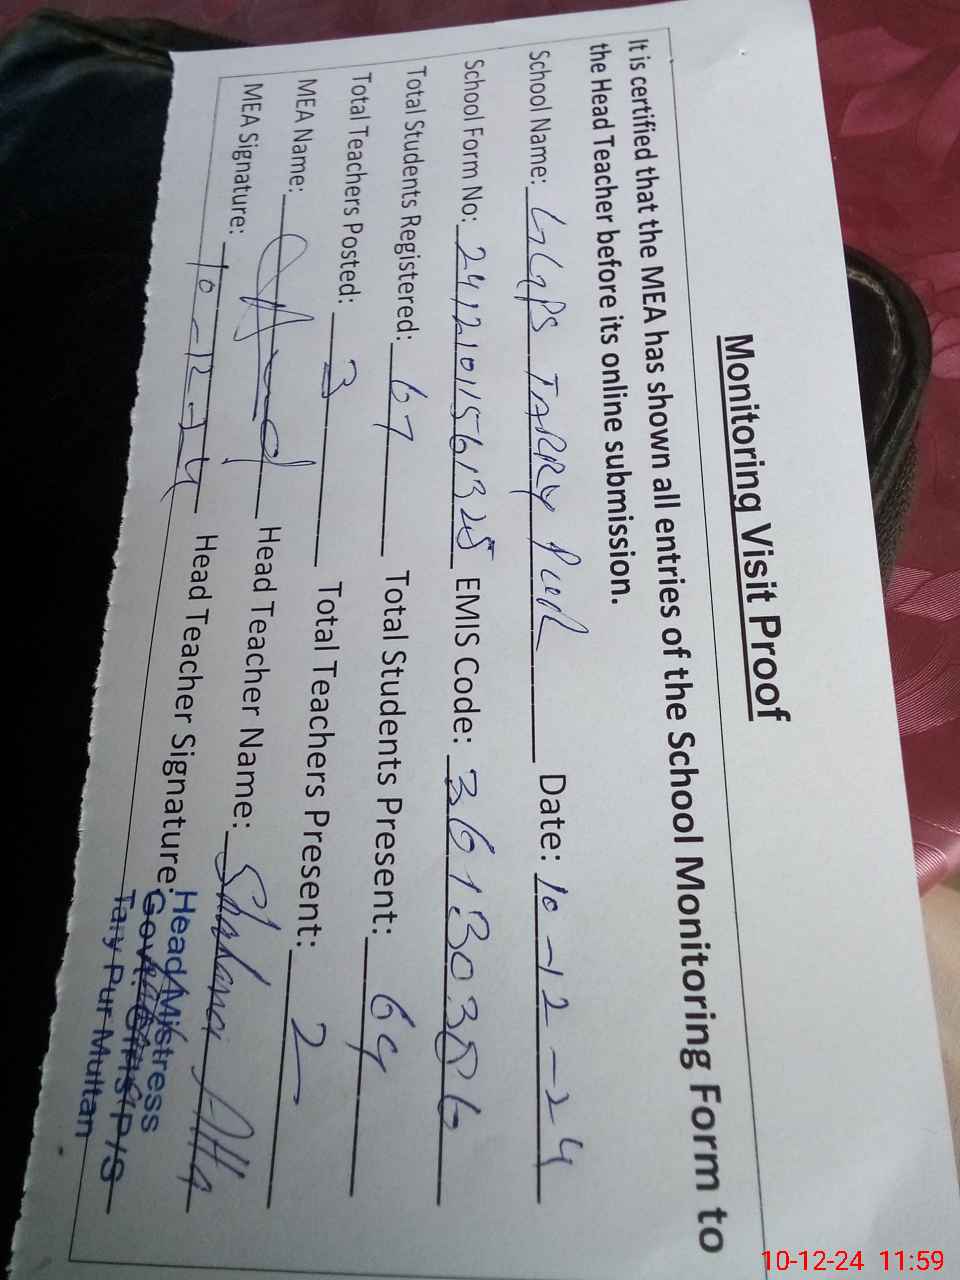 Monitoring Visit Proof
It is certified that the MEA has shown all entries of the School Monitoring Form to
the Head Teacher before its online submission.
School Name: GGPS TARRY PUR Date: 10-12-24
School Form No: 24121011561325 EMIS Code: 36130386
Total Students Registered: 67 Total Students Present: 64
Total Teachers Posted: 3 Total Teachers Present: 2
MEA Name: Head Teacher Name: Shabana
MEA Signature: 10-12-24 Head Teacher Signature:
Head Mistress
Govt. Girls P/S
Tary Pur Multan
10-12-24 11:59